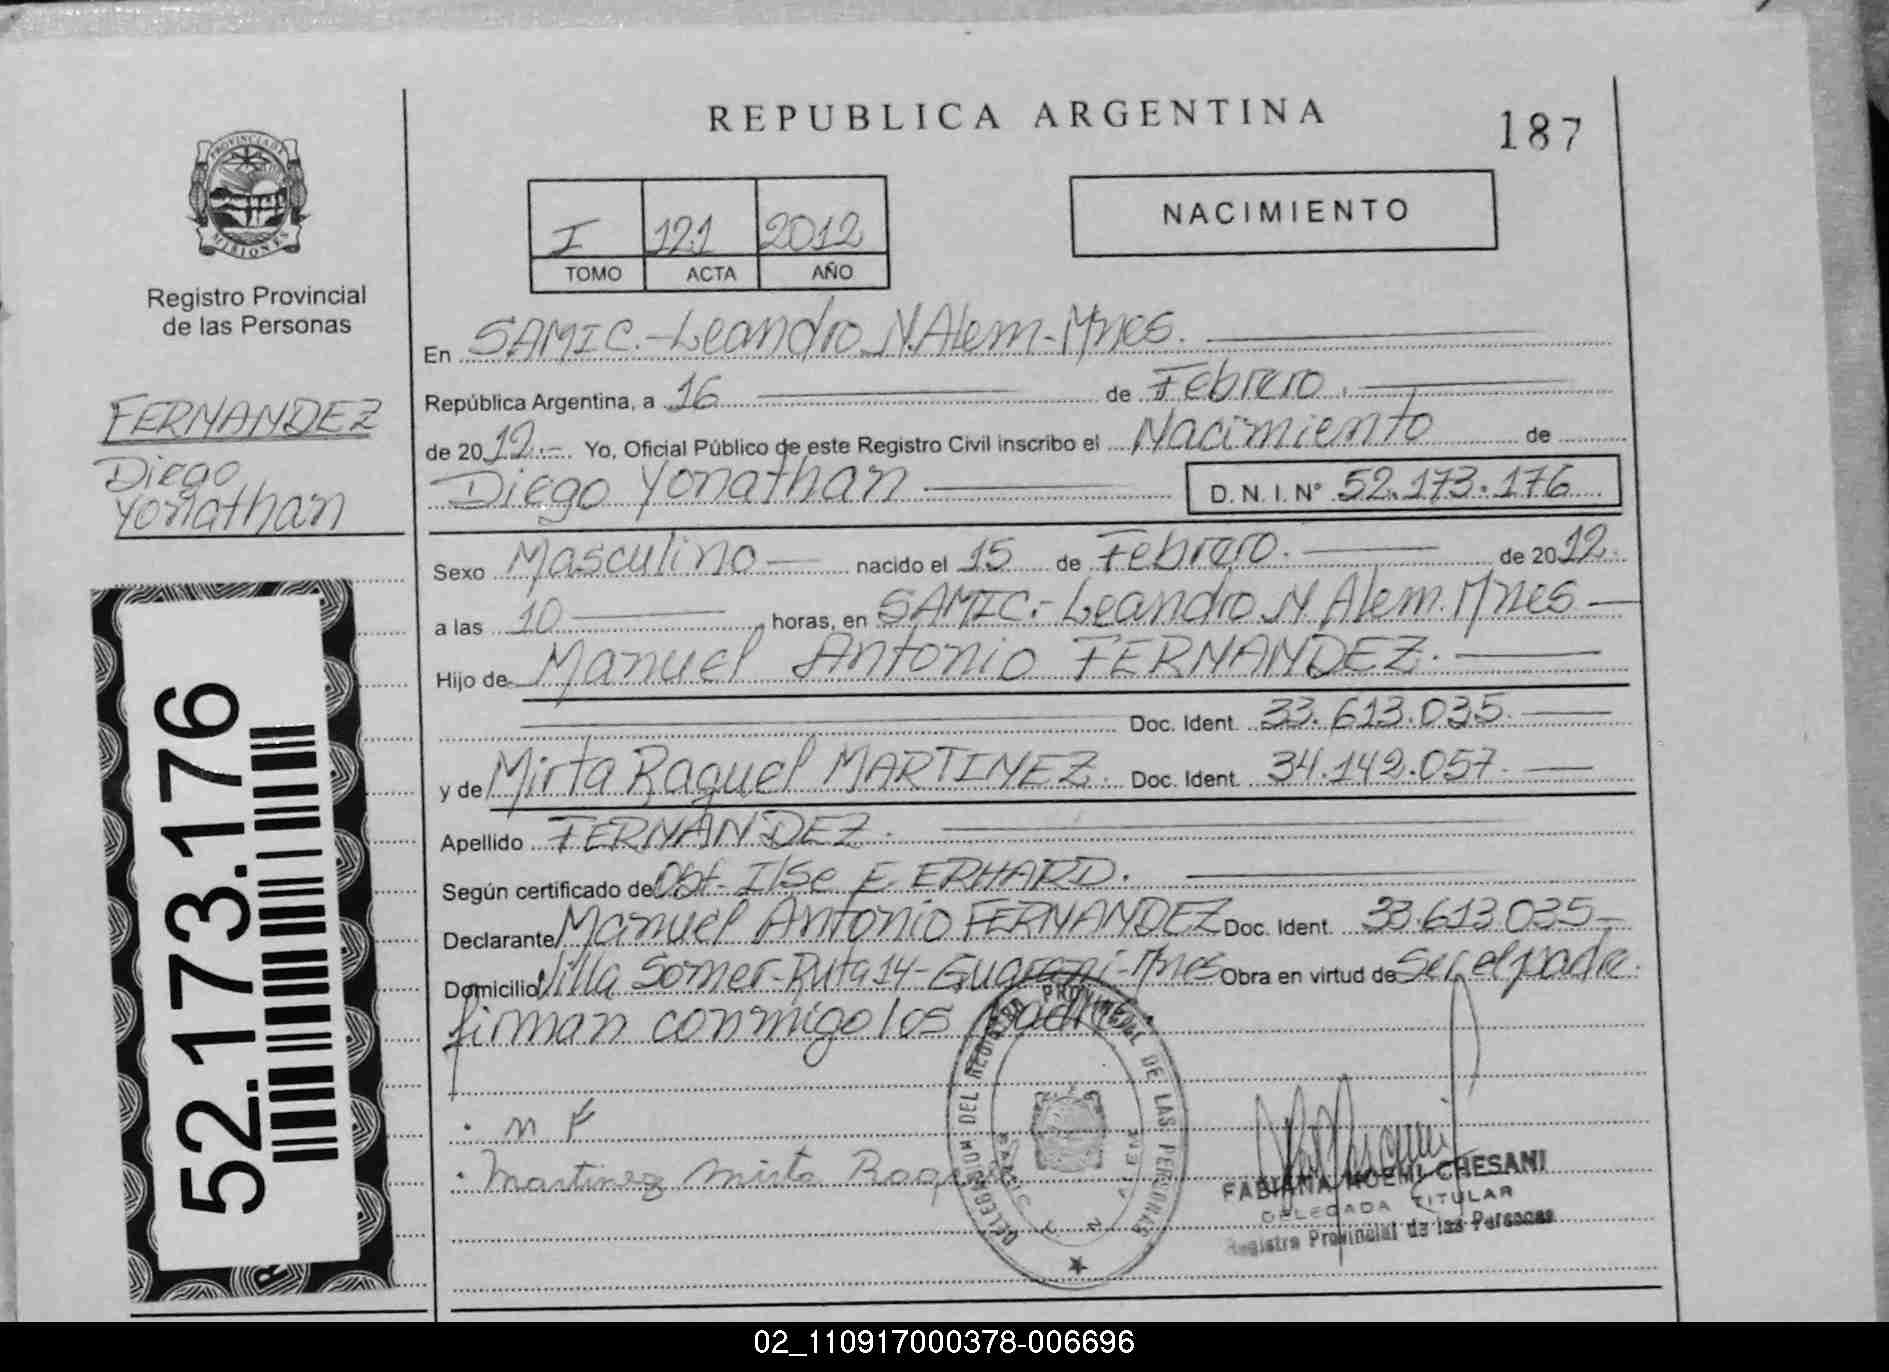 REPUBLICA ARGENTINA
187
PROVINCIA DE
MISIONES
Registro Provincial
de las Personas
I 121 2012
TOMO ACTA AÑO
NACIMIENTO
FERNANDEZ
Diego
Yonathan
52.173.176
En SAMIC.-Leandro N.Alem-Mnes.
República Argentina, a 16 de Febrero.
de 2012.- Yo, Oficial Público de este Registro Civil inscribo el Nacimiento de
Diego Yonathan D.N.I. N° 52.173.176
Sexo Masculino nacido el 15 de Febrero. de 2012.
a las 10 horas, en SAMIC.-Leandro N Alem. Mnes
Hijo de Manuel Antonio FERNANDEZ.
Doc. Ident. 33.613.035.
y de Mirta Raquel MARTINEZ. Doc. Ident. 34.142.057.
Apellido FERNANDEZ.
Según certificado de Obst. Ilse E. ERHARD.
Declarante Manuel Antonio FERNANDEZ Doc. Ident. 33.613.035-
Domicilio Villa Somer-Ruta 14-Guarani-Mnes Obra en virtud de Ser el padre.
firman conmigo los
DELEGACION DEL REGISTRO PROVINCIAL DE LAS PERSONAS
m F
Martinez mirta Raquel
FABIANA NOEMI CHESANI
DELEGADA TITULAR
Registro Provincial de las Personas
02_110917000378-006696